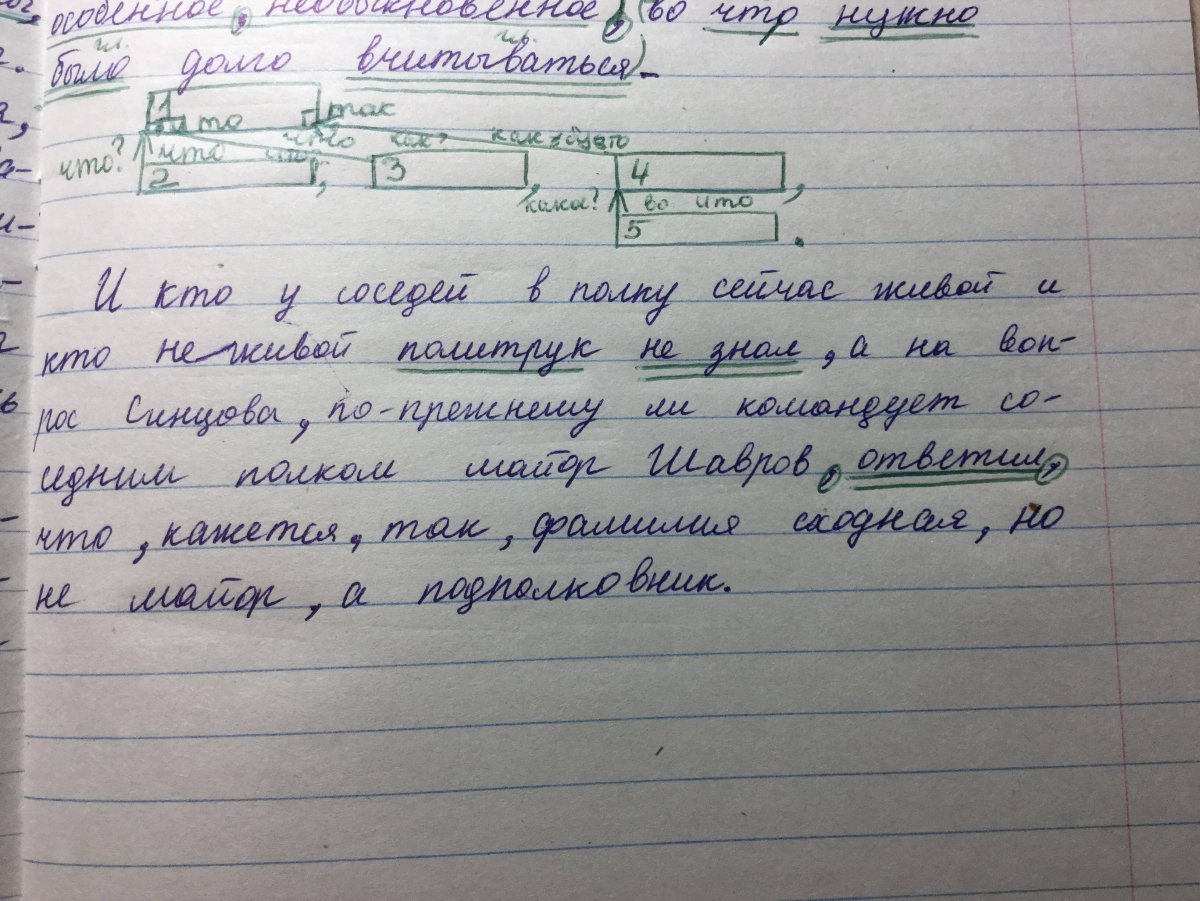 особенное, необыкновенное, (во что нужно
гл. гл.
было долго вчитываться)
1
то так
что как? как будто
что? что
2 , 3 , 4 ,
какое? во что
5 .
И кто у соседей в полку сейчас живой и
кто не живой политрук не знал, а на воп-
рос Синцова, по-прежнему ли командует со-
седним полком майор Шавров, ответил,
что, кажется, так, фамилия сходная, но
не майор, а подполковник.